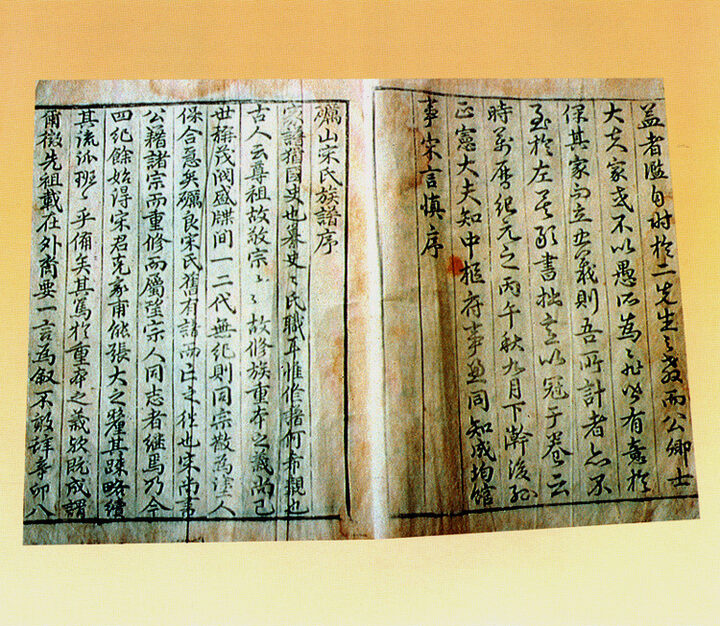 益者濫自附於二先生之義而公卿士
大夫家或不以愚所為之非皆有意於
保其家而立其義則吾所計者亦不
至於左矣敢書拙言以冠于卷云
時萬曆紀元之丙午秋九月下澣後孫
正憲大夫知中樞府事兼同知成均館
事宋言慎序
礪山宋氏族譜序
家譜猶國史也纂史史氏職耳惟修譜何希覯也
古人云尊祖故敬宗敬宗故修族重本之義尚已
世棭茂閥盛牒間一二代無紀則同宗散為塗人
保合意矣礪良宋氏舊有譜而亡之徃也宋尚書
公籍諸宗而重修而屬望宗人同志者継焉乃今
四紀餘始得宋君克家甫能張大之釐其踈略續
其流派班班乎備矣其篤於重本之義欤既成謂
爾徵先祖載在外裔要一言為叙不敢辞奉印八